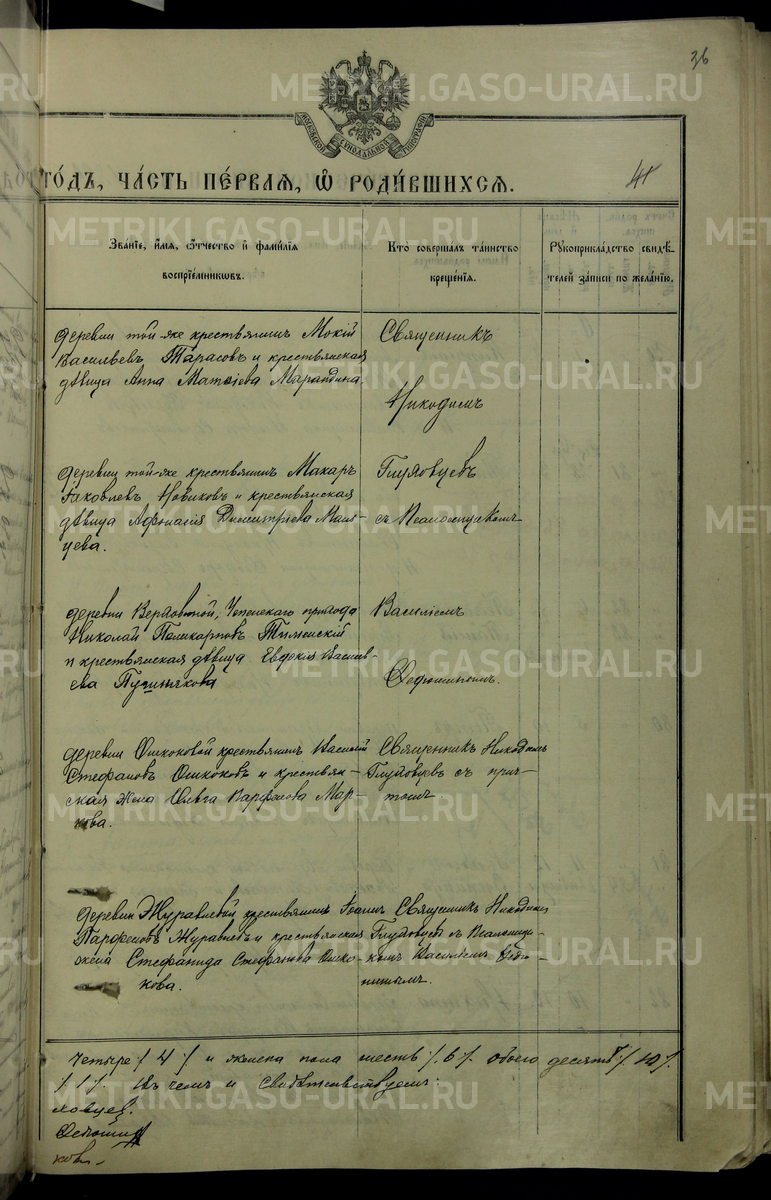 36
МОСКОВСКОЙ СѴНОДАЛЬНОЙ ТИПОГРАФІИ
METRIKI.GASO-URAL.RU
го́дъ, ча́сть пе́рваѧ, ѡ роди́вшихсѧ.
41
Зва́нїе, и́мѧ, ѻ́тчество и҆ фами́лїѧ воспрїе́мниковъ.
Кто̀ соверша́лъ та́инство креще́нїѧ.
Рꙋкоприкла́дство свидѣ́телей за́писи по жела́нїю.
деревни той-же крестьянинъ Мокій
Васильевъ Тарасовъ и крестьянская
дѣвица Анна Матѳіева Марандина.
Священникъ
Никодимъ
деревни той-же крестьянинъ Макаръ
Іаковлевъ Новиковъ и крестьянская
дѣвица Афонасія Димитріева
цева.
Глуховцевъ
съ Псаломщикомъ
деревни Верховной, прихода
Николай Поликарповъ
и крестьянская дѣвица Евдокія Василь-
ева
Василіемъ
деревни Ошкоковой крестьянинъ Василій
Стефановъ Ошкоковъ и крестьян-
ская жена Ольга Мар-
кова.
Священникъ Никодимъ
Глуховцевъ съ прич-
томъ.
деревни Журавлевой крестьянинъ Іоаннъ
Парфеновъ Журавлевъ и крестьянская
жена Стефанида Стефанова Ошко-
кова.
Священникъ Никодимъ
Глуховцевъ съ Псаломщи-
комъ Василіемъ
четыре /4/ и женска пола шесть /6/. обоего десять /10/.
/1/. Въ чемъ и свидѣтельствуемъ:
ховцев.
ковъ